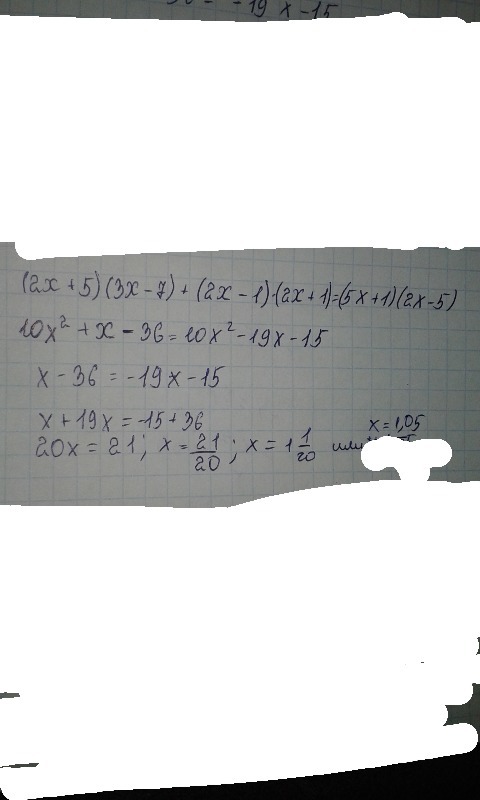 -19x-15
(2x+5)(3x-7)+(2x-1)·(2x+1)=(5x+1)(2x-5)
10x²+x-36=10x²-19x-15
x-36=-19x-15
x+19x=-15+36
x=1,05
20x=21; x=21/20; x=1 1/20 или